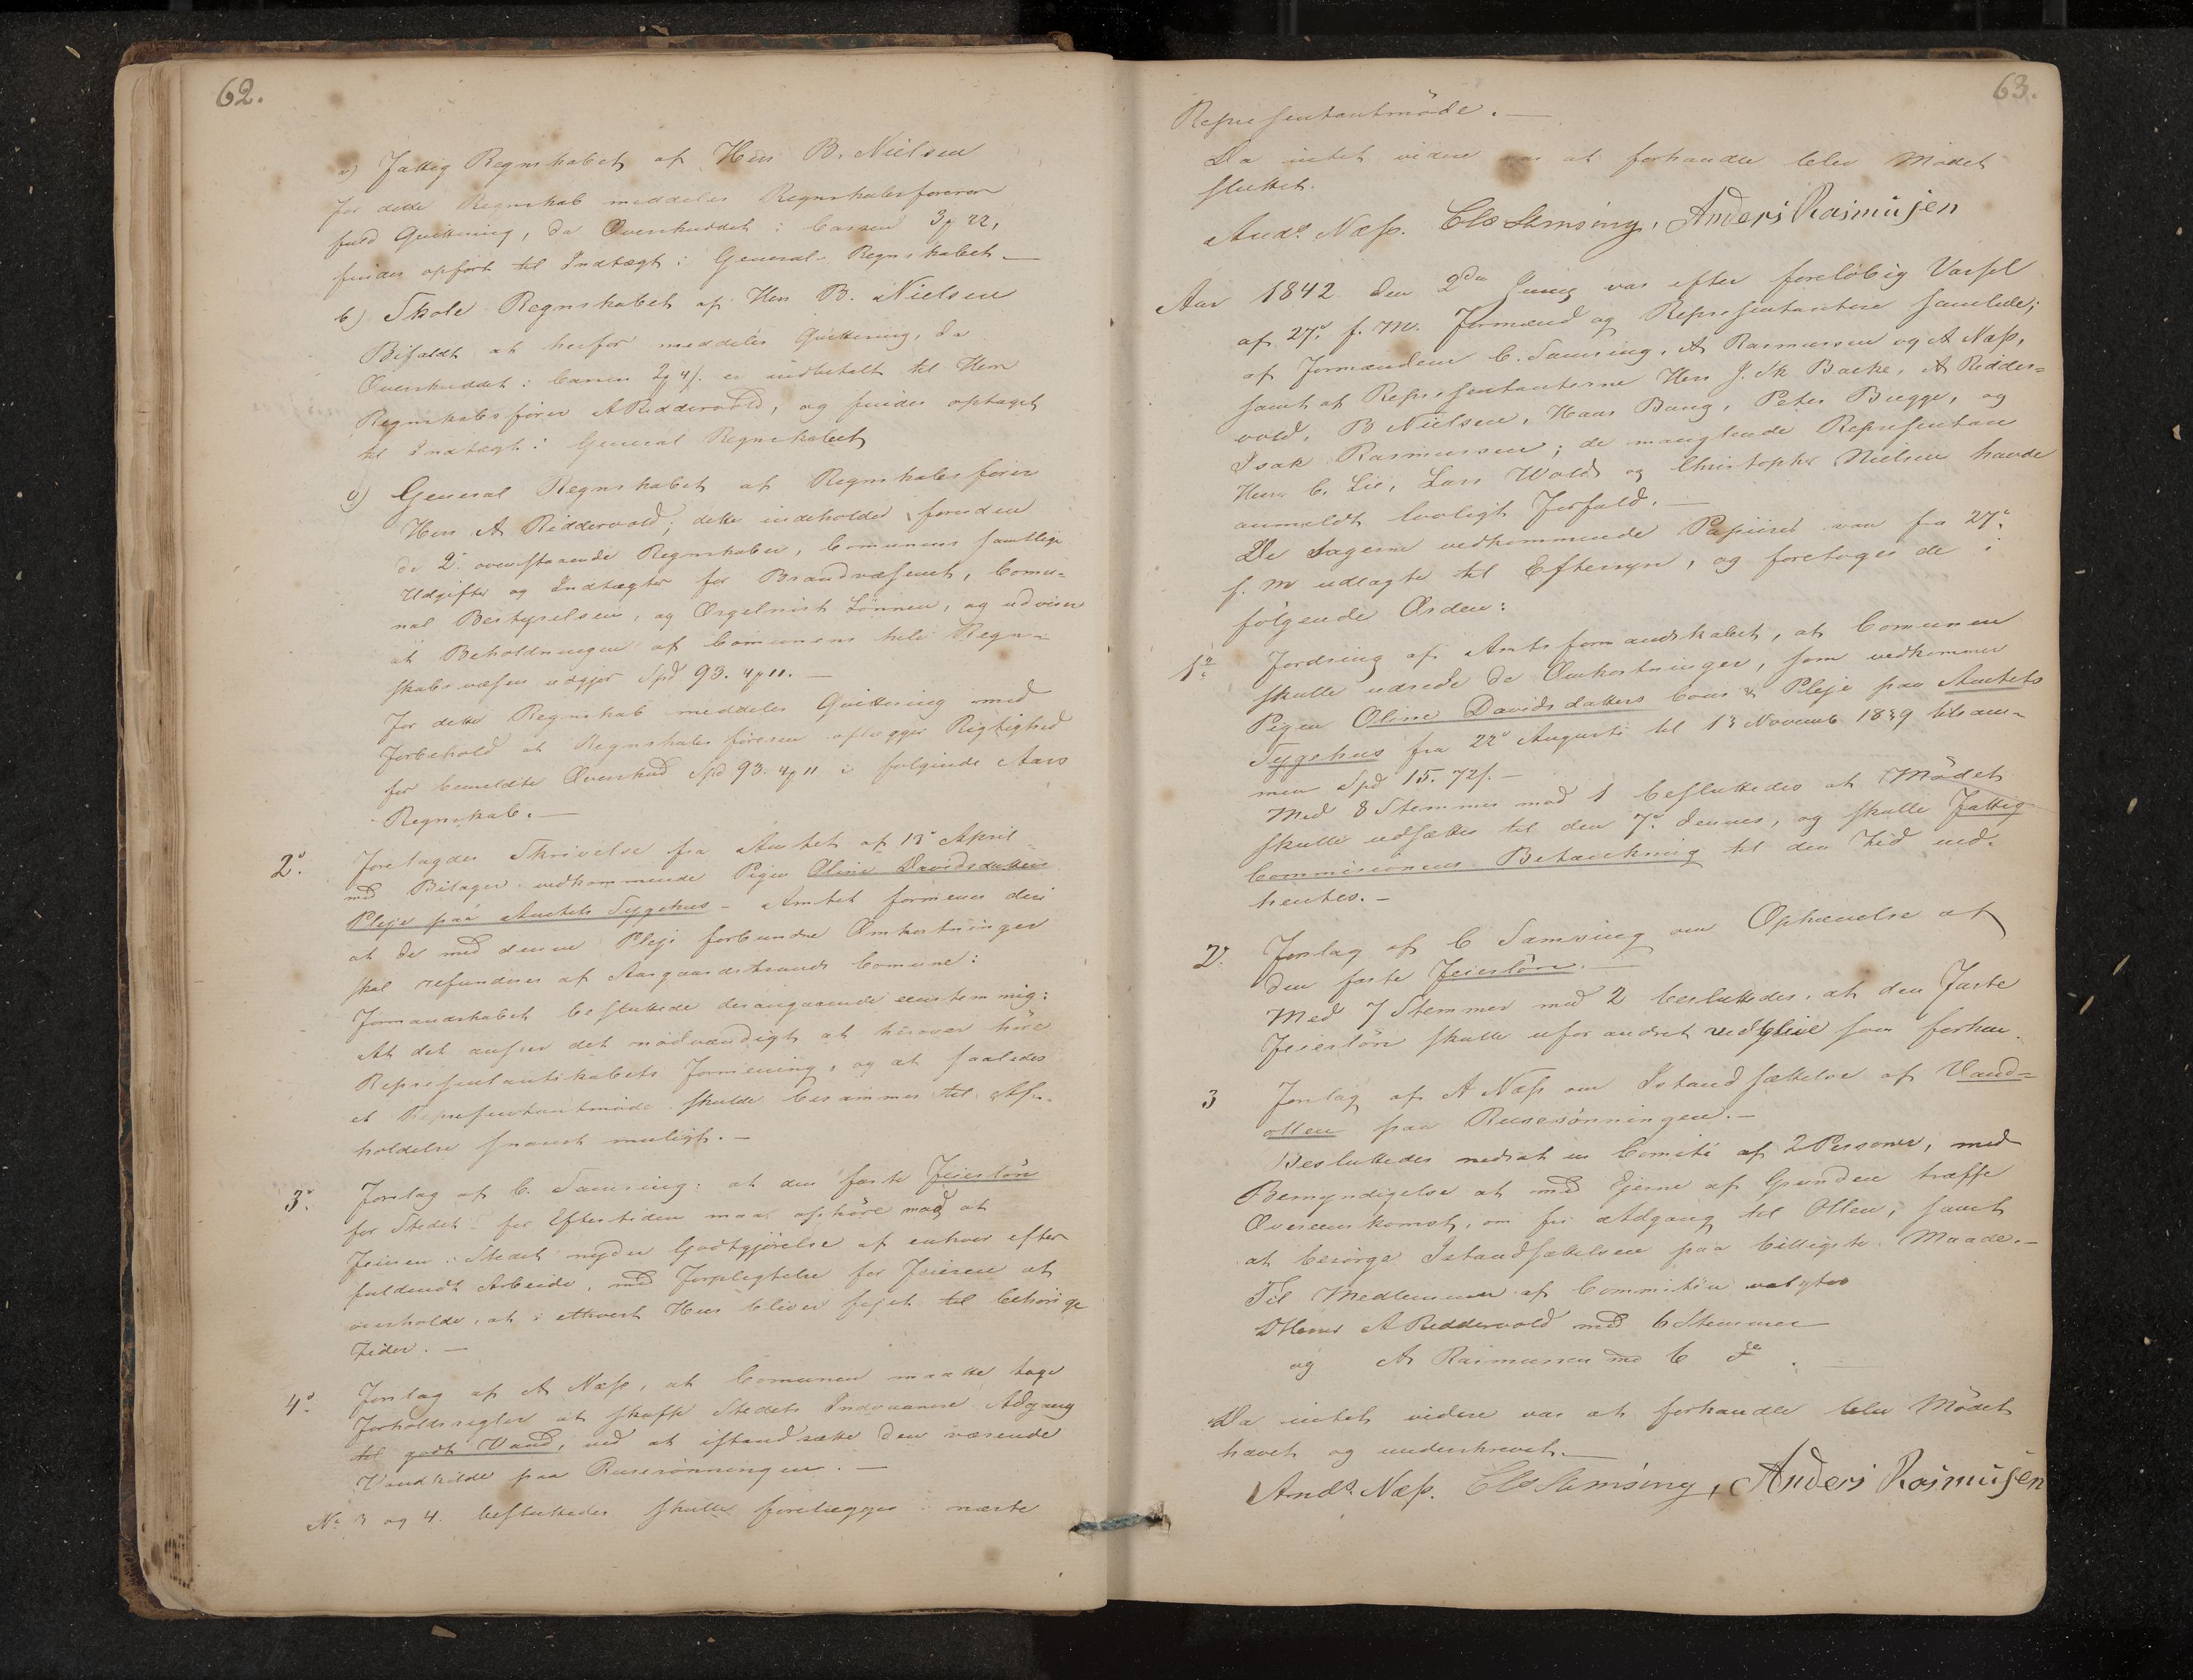 62.
a) Fattig Regnskabet af Herr B. Nielsen
for dette Regnskab meddeles Regnskabsføreren
fuld Qvittering, da Overskuddet i Cassen 3 22,
findes opført til Indtægt i General-Regnskabet. —
b) Skole Regnskabet af Herr B. Nielsen
Bifaldt at herfor meddeles Qvittering, da
Overskuddet i Cassen 2 4 s. er indbetalt til Herr
Regnskabsfører A Riddervold, og findes optaget
til Indtægt i General Regnskabet
c) General Regnskabet af Regnskabsfører
Herr A Riddervold; dette indeholder foruden
de 2 ovenstaaende Regnskaber, Comunens samtlige
Udgifter og Indtægter for Brandvæsenet, Comu-
nal Bestyrelsen, og Orgelnist Lønnen, og udviser
at Beholdningen af Comunens hele Regn-
skabsvæsen udgjør Spd 93. 4 11. —
For dette Regnskab meddeles Qvittering med
Forbehold at Regnskabsføreren aflægger Rigtighed
for bemeldte Overskud Spd 93. 4 11 i følgende Aars
Regnskab. —
2. Forelagdes Skrivelse fra Amtet af 13 April
med Bilager vedkommende Pigen Oline Davidsdatters
Pleje paa Amtets Sygehus – Amtet formener deri
at de med denne Pleje forbundne Omkostninger
skal refunderes af Aasgaardstrands Comune:
Formandskabet besluttede desangaaende eenstemmig:
At det anseer det nødvændigt at herover høre
Repræsentantskabets Formening, og at saaledes
et Repræsentantmøde skulde berammes til Af-
holdelse snarest muligt. —
3. Forslag af C. Samsing: at den faste Feierløn
for Stedet for Eftertiden maa ophøre mod at
Feieren i Stedet nyder Godtgjørelse af enhver efter
fuldendt Arbeide, med Forpligtelse for Feieren at
overholde, at i ethvert Huus bliver fejet til behørige
Tider. —
4. Forslag af A Næss, at Comunen maatte tage
Forholdsregler at skaffe Stedets Indvaanere Adgang
til godt Vand, ved at istandsætte den værende
Vandkilde paa Rusesrønningen. —
No 3 og 4. besluttedes skulle forelægges i næste
63.
Repræsentantmøde. —
Da intet videre var at forhandle blev Mødet
sluttet.
Ands. Næss. Chs Samsing, Anders Rasmusen
Aar 1842 den 2den Juny var efter foreløbig Varsel
af 27. f. M. Formænd og Repræsentantere samlede;
af Formændene C. Samsing, A Rasmussen og A Næss,
samt af Repræsentanterne Herr J. Sk Backe, A Ridder=
vold, B Nielsen, Hans Bang, Peter Bugge, og
Isak Rasmussen; de manglende Repræsentan
Herr C. Lie, Lars Wold og Christopher Nielsen havde
anmeldt lovligt Forfald. —
De Sagerne vedkommende Papirer var fra 27.
f. M udlagte til Eftersyn, og foretoges de i
følgende Orden:
1. Fordring af Amtsformandskabet, at Comunen
skulle udrede de Omkostninger, som vedkommer
Pigen Oline Davidsdatters Cour & Pleje paa Amtets
Sygehus fra 22 August til 13 Novemb 1839 tilsam-
men Spd 15. 72 s. —
Med 8 Stemmer mod 1 besluttedes at Mødet
skulle udsættes til den 7. dennes, og skulle Fattig
Commisionens Betænkning til den Tid ind-
hentes. —
2. Forslag af C Samsing om Ophævelse af
den faste Feierløn. —
Med 7 Stemmer mod 2 besluttedes, at den Faste
Feierløn skulle uforandret vedblive som forhen.
3 Forslag af A Næss om Istandsættelse af Vand=
ollen paa Rusesrønningen. —
Besluttedes nedsat en Comite af 2 Personer, med
Bemyndigelse at med Ejerne af Grunden træffe
Overeenskomst, om fri Adgang til Ollen, samt
at besørge Istandsættelsen paa billigste Maade. —
Til Medlemmer af Committen valgtes
DHerrer A Riddervold med 6 Stemmer
og A Rasmussen med 6 do. —
Da intet videre var at forhandle blev Mødet
hævet og underskrevet. —
Ands. Næss. Chs Samsing, Anders Rasmusen